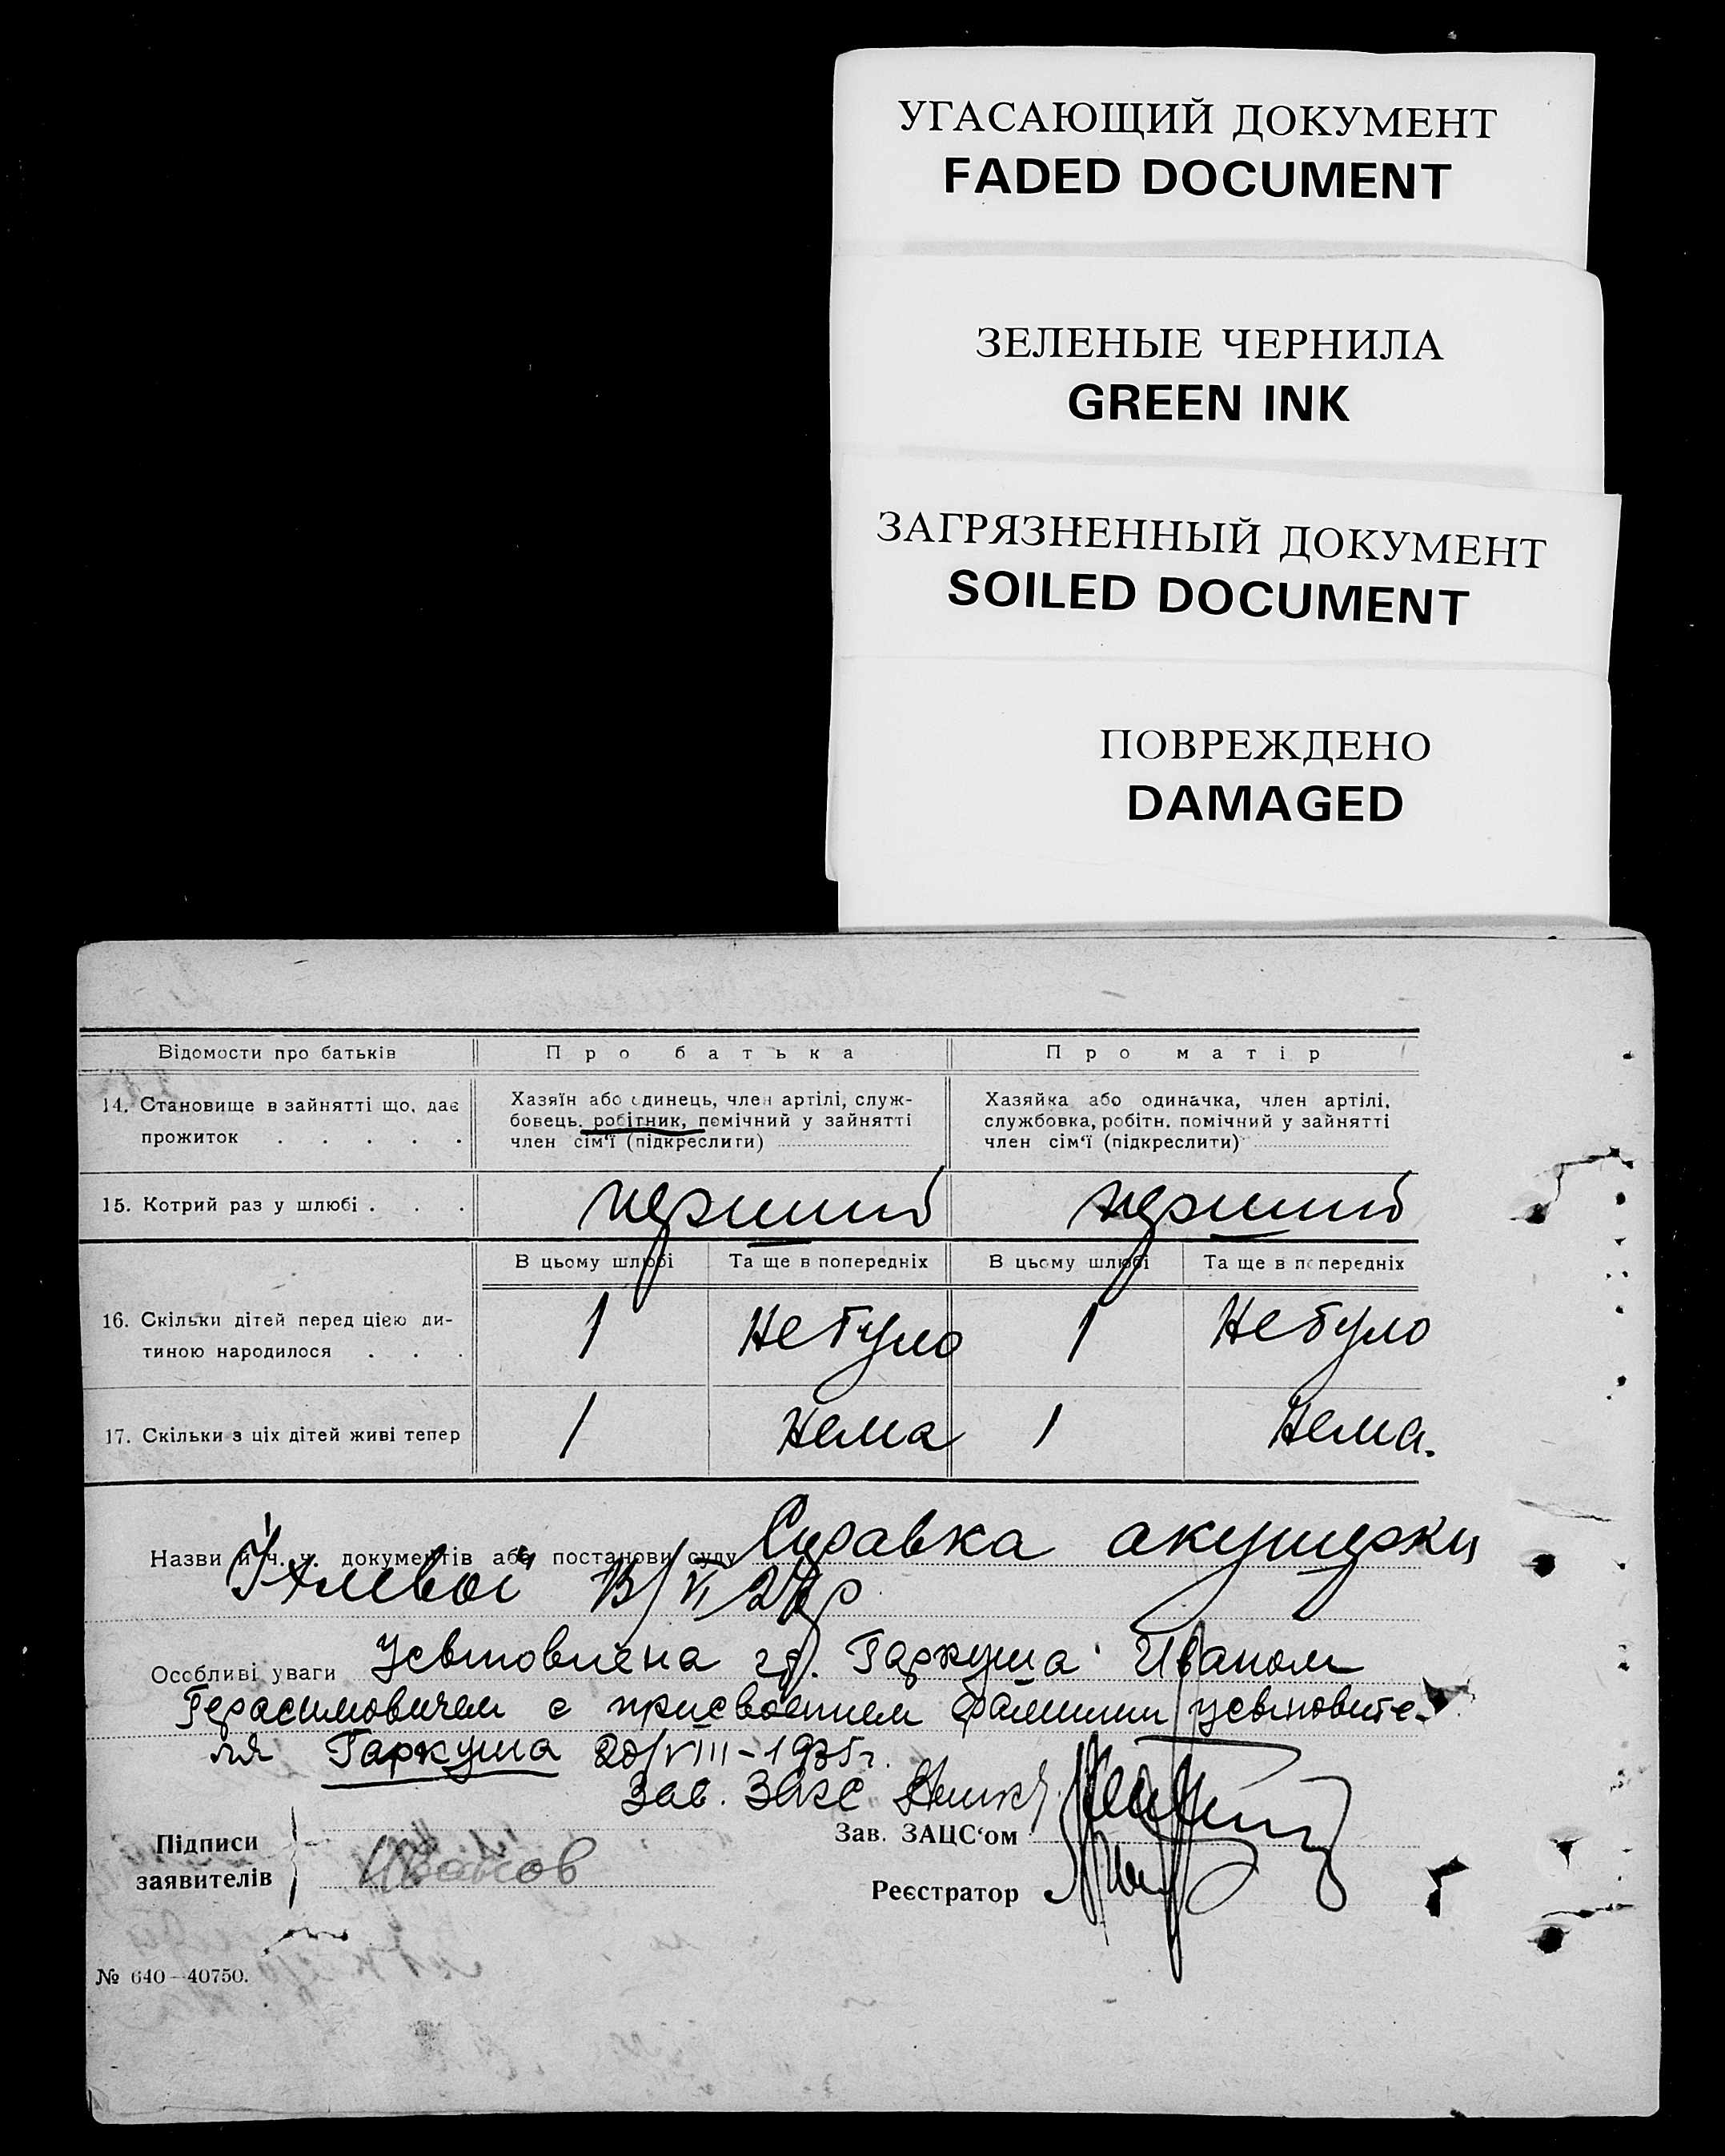 УГАСАЮЩИЙ ДОКУМЕНТ
FADED DOCUMENT
ЗЕЛЕНЫЕ ЧЕРНИЛА
GREEN INK
ЗАГРЯЗНЕННЫЙ ДОКУМЕНТ
SOILED DOCUMENT
ПОВРЕЖДЕНО
DAMAGED
Відомости про батьків
Про батька
Про матір
14. Становище в зайнятті що, дає
прожиток . . . . .
Хазяїн або одинець, член артілі, служ-
бовець, робітник, помічний у зайнятті
член сім'ї (підкреслити)
Хазяйка або одиначка, член артілі,
службовка, робітн. помічний у зайнятті
член сім'ї (підкреслити)
15. Котрий раз у шлюбі . . .
перший
перший
В цьому шлюбі
Та ще в попередніх
В цьому шлюбі
Та ще в попередніх
16. Скільки дітей перед цією ди-
тиною народилося . . .
1
Не було
1
Не було
17. Скільки з ціх дітей живі тепер
1
Нема
1
Нема.
Назви й ч. ч. документів або постанови суду Справка акушерки
Особливі уваги Усвтовлена гр. Гаркуша Иваном
Герасимовичем с присвоением фамилии усвтовите-
ля Гаркуша 20/VIII-1935г.
Зав. Загс
Підписи
заявителів
Иванов
Зав. ЗАЦС'ом
Реєстратор
№ 640—40750.